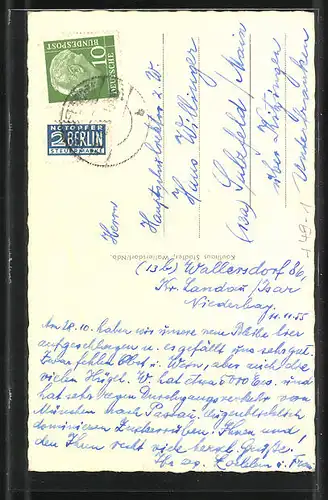 10
DEUTSCHE
BUNDESPOST
NOTOPFER
2 BERLIN
STEUERMARKE
Herrn
Hauptschullehrer z. W.
Hans Willinger
(13a) Sulzfeld / Main
über Kitzingen
Unterfranken
149-1
Kaufhaus Stadler Wallersdorf/Ndb.
(13b) Wallersdorf 86,
Kr. Landau / Isar
Niederbay.
11.11.55
Am 28.10. haben wir unsere neue Bleibe hier
aufgeschlagen u. es gefällt uns sehr gut.
Zwar fehlen Obst u. Wein, aber auch die
vielen Hügel. W. hat etwa 5000 Einw. und
hat sehr regen Durchgangsverkehr von
München nach Passau. Augenblicklich
dominieren Zuckerrüben. Ihnen und
den Ihren recht viele herzl. Grüße.
Ihr erg. u. Frau